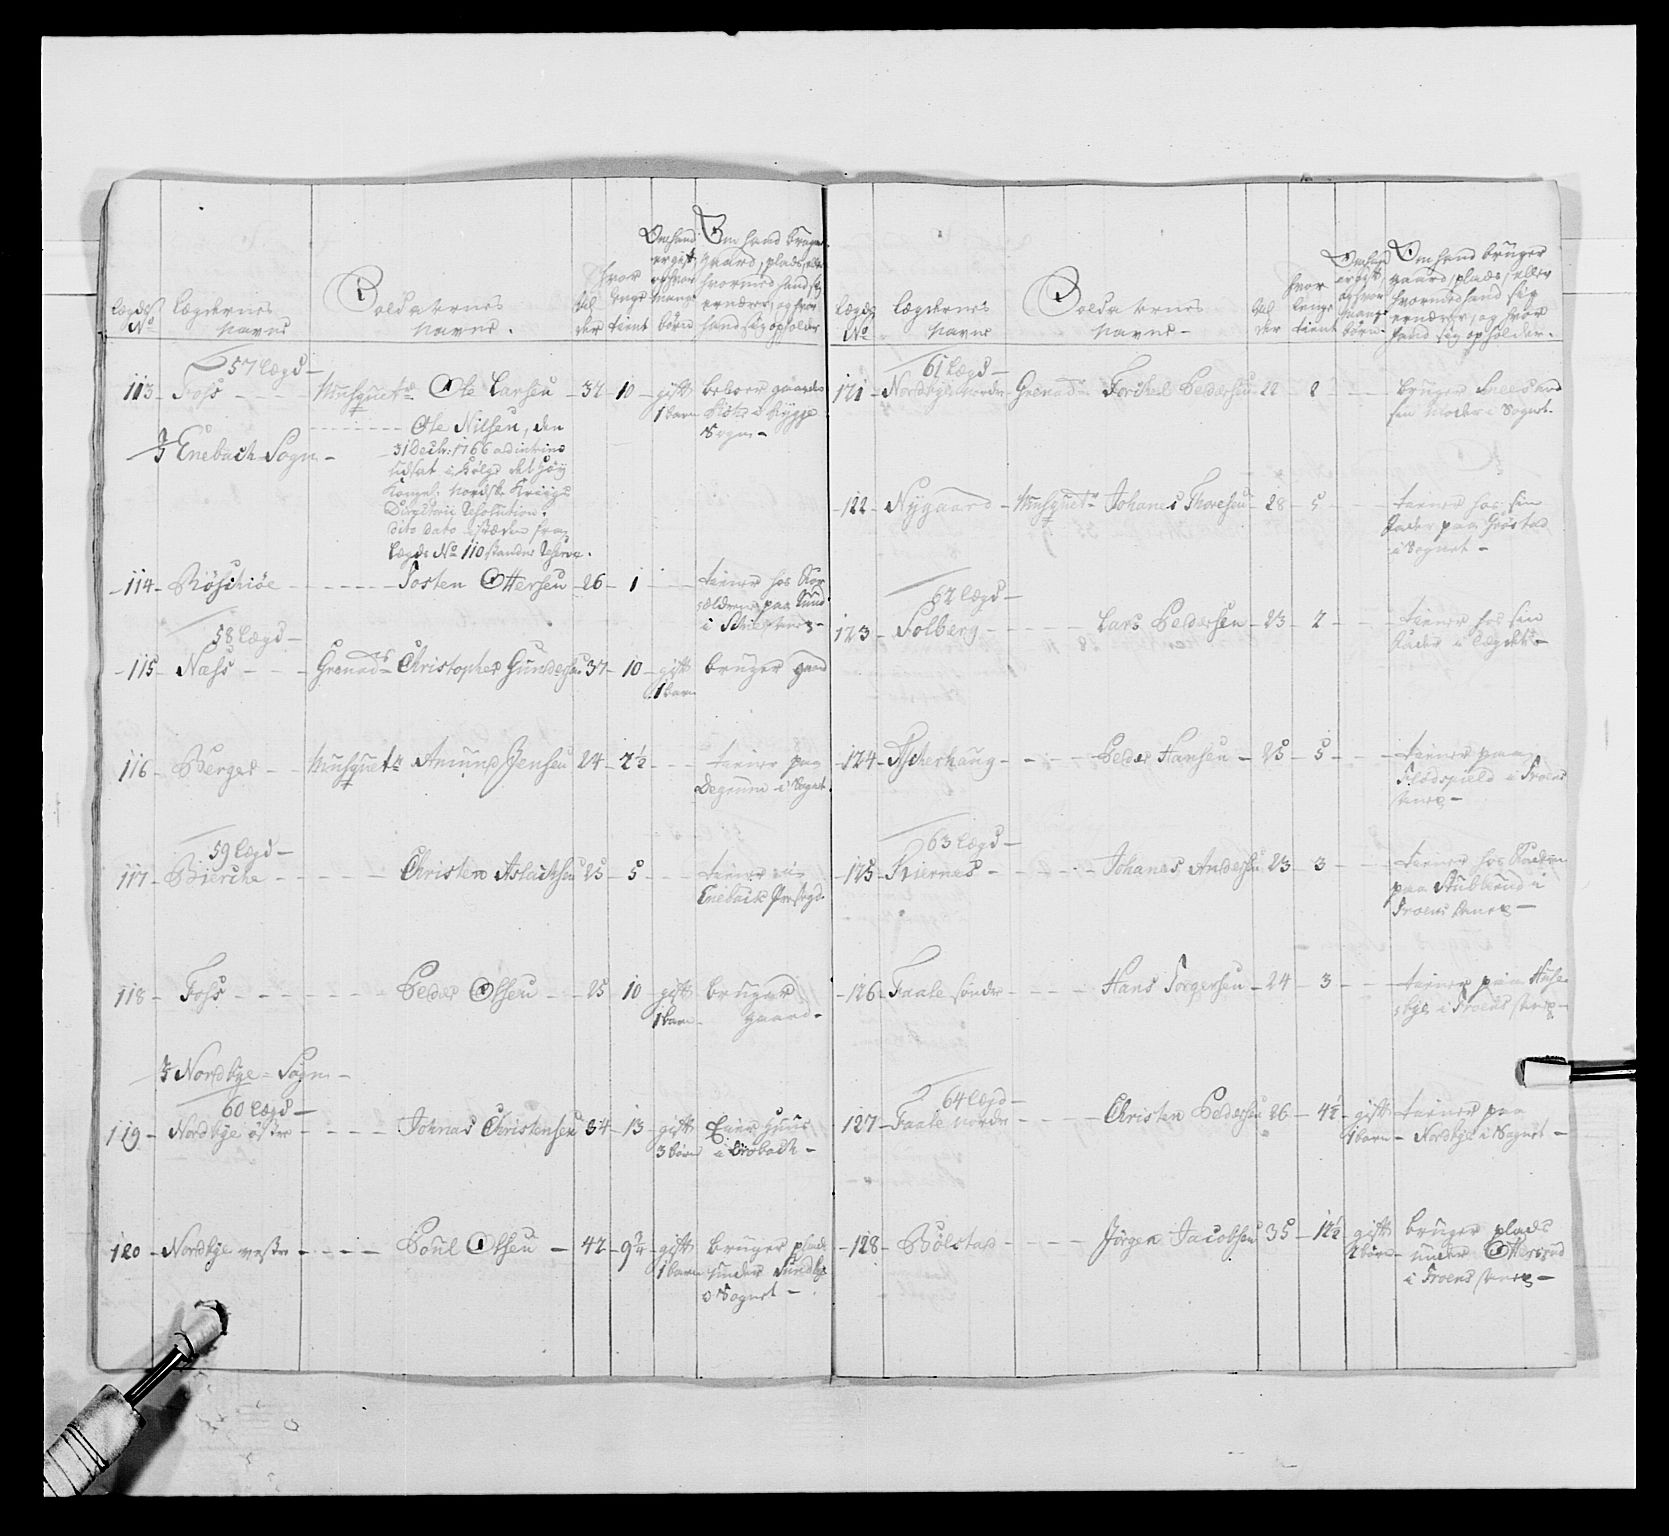 Lægds No
Lægdernes Navne
Soldaternes Navne.
Alder
hvor lenge tient
Om hand er gift og hvor mange börn
Om hand bruger gaard, plads, eller hvormed hand sig ernærer, og hvor hand sig opholder
57 Lægd
113 - Foss - - - Musquetr Ole Larsen - 32 - 10 - gift 1 barn beboer gaarden i Rygge Sogn -
- - - Ole Nilsen, den
31 Decbr: 1766 ad intrim
udsat i fölge det Höy
Kongel: Nordske Kriigs
Directorii Resolution.
dito dato istæden fra
Lægds No 110 standne Reserve.
I Enebach Sogn -
114 - Röschiöe - - - Tosten Ottersen - 26 - 1 - - tiener hos paa Sund i
58 Lægd -
115 - Næss - - - Grenadr Christopher Gundersen 37 - 10 - gift 1 barn bruger gaard
116 - Berger - - Musquetr Amund Jensen 24 - 2½ - - tiener paa Degrum i Sognet
59 Lægd -
117 - Biercke - - - Christen Aslachsen 25 - 5 - - tiener i Enebachs Præstegd.
118 - Foss - - - Peder Olsen - 25 - 10 - gift 1 barn - bruger gaard -
I Nordbye - Sogn -
60 Lægd -
119 - Nordbye öster - - - Johnas Christensen 34 - 13 - gift 3 börn Eier Huus i Dröbach -
120 - Nordbye vester - - - Poul Olsen - 42 - 9¾ - gift 1 barn bruger plads under Sundby i Sognet -
Lægds No
Lægdernes Navne
Soldaternes Navne -
Alder
hvor lenge tient
Om hand er gift og hvor mange börn
Om hand bruger gaard, plads, eller hvormed hand sig ernærer, og hvor hand sig opholder.
61 Lægd -
121 - Nordbye nordre Grenadr Torchel Pedersen 22 - 2 - - bruger med sin Moder i Sognet -
122 - Nygaard - Musquetr Johanes Thoresen - 28 - 5 - - tiener hos sin Fader paa i Sognet -
62 Lægd -
123 - Solberg - - - Lars Pedersen - 23 - 2 - - tiener hos sin Fader i Lægdet -
124 - Ascherhaug - - - Peder Hansen - 25 - 5 - - tiener paa Flodspield i Froens
63 Lægd -
125 - Kiernes - - - Johanes Andersen 23 - 3 - - tiener hos paa Stubberud i Froens
126 - Faale söndre - - - Hans Torgersen - 24 - 3 - - tiener paa Husebye i Froens
64 Lægd -
127 - Faale nordre - - - Christen Pedersen 26 - 4½ - gift 1 barn - tiener paa Nordbye i Sognet -
128 - Bölstad - - - Jörgen Jacobsen 35 - 12½ gift 2 börn - bruger plads under Ottersrud i Froens